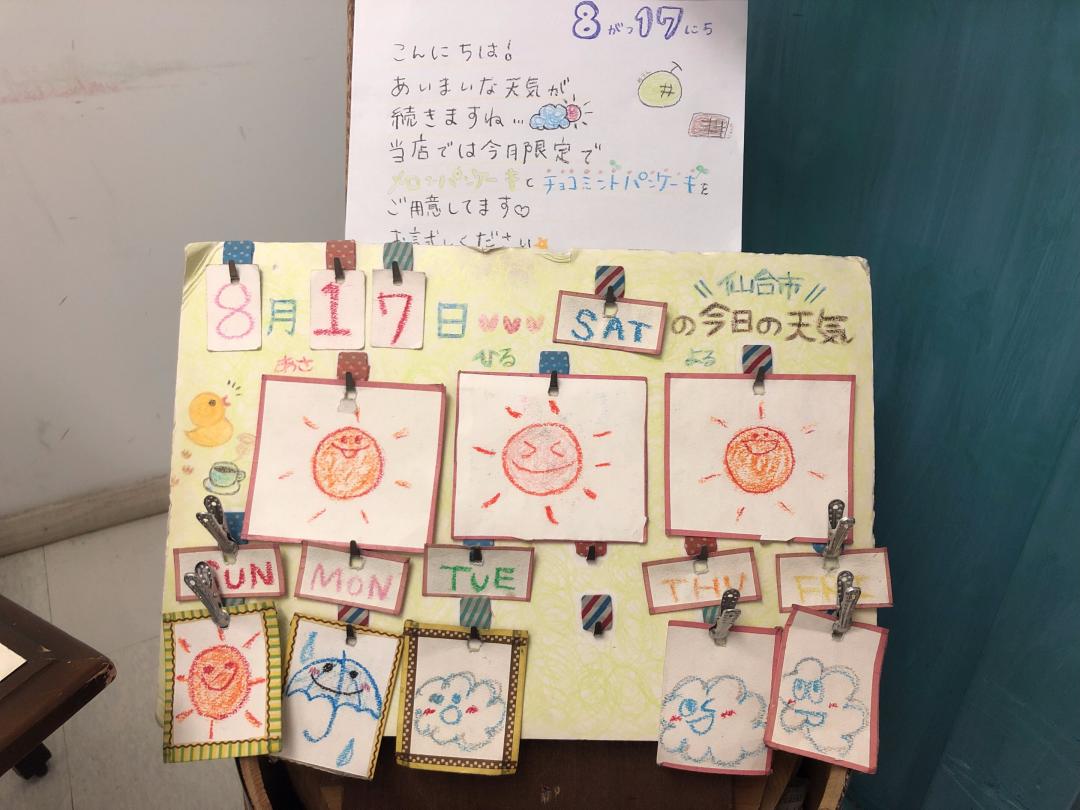 8がつ17にち
こんにちは!
あいまいな天気が
続きますね…
当店では今月限定で
メロンパンケーキとチョコミントパンケーキを
ご用意してます♡
お試しください
仙台市
8月17日 SATの今日の天気
あさ ひる よる
SUN MON TUE THU FRI